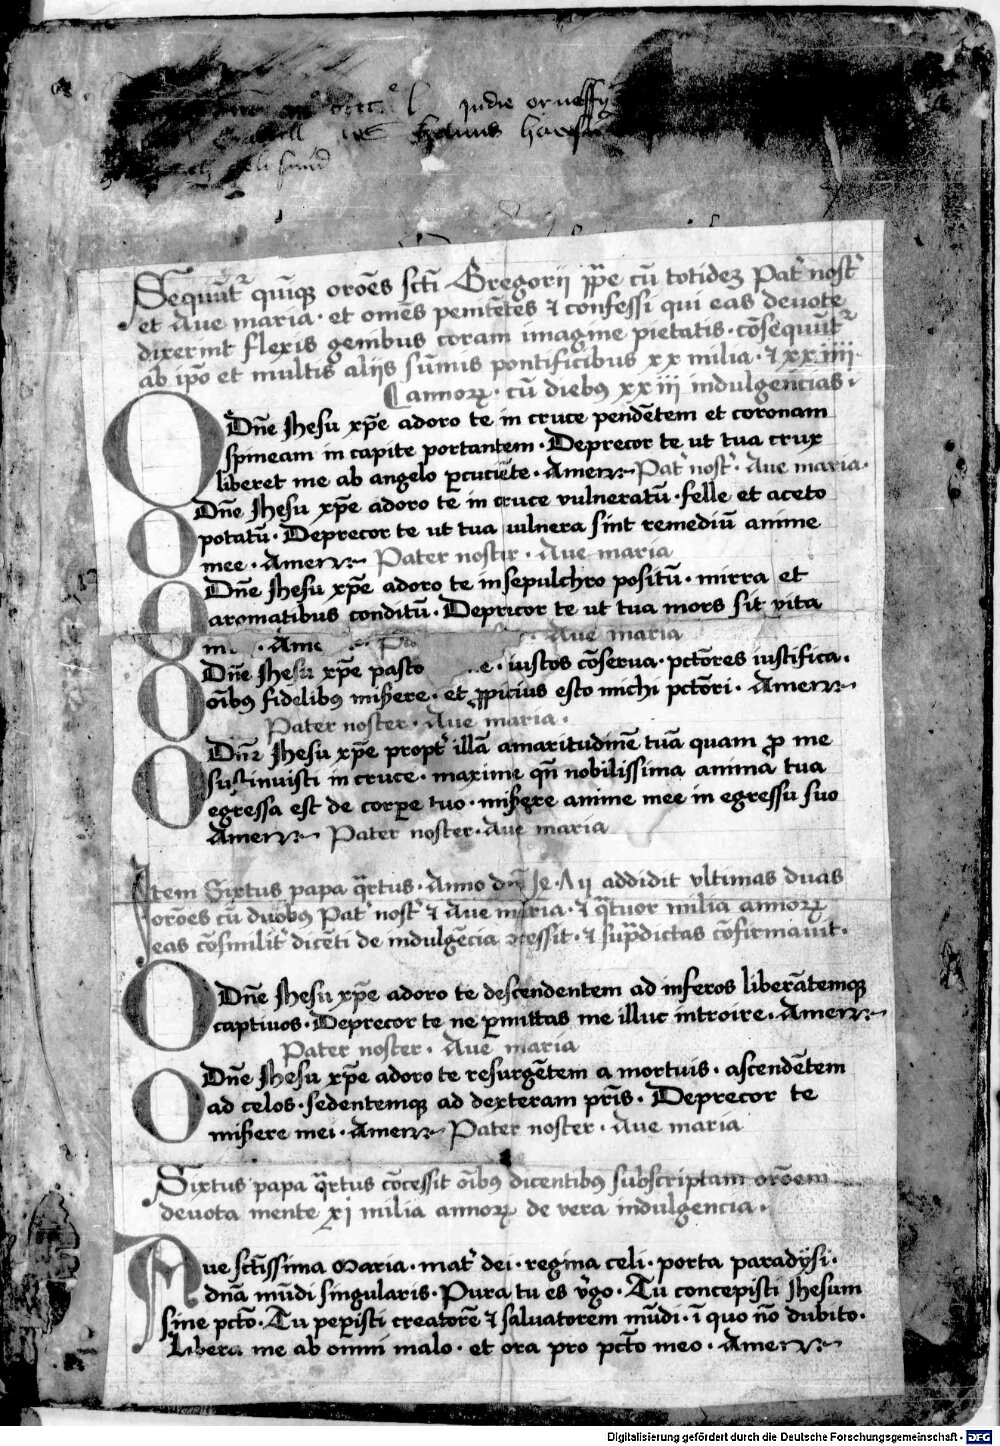 Sequūt᷑ quīqꝫ oroēs scti Gregorij ppe cū totidez Pat᷑ nost᷑
et Aue maria · et omēs penitētes ⁊ confessi qui eas deuote
dixerint flexis genibus coram imagine pietatis · cōsequūt᷑
ab ipo et multis alijs sūmis pontificibus xx milia · ⁊ xxiiii ·
annoꝝ · cū diebꝰ xxiii indulgencias ·
O Dn̄e Jhesu xp̄e adoro te in cruce pendētem et coronam
spineam in capite portantem · Deprecor te ut tua crux
liberet me ab angelo ꝑcuciēte · Amen Pat᷑ nost᷑ · Aue maria ·
O Dn̄e Jhesu xp̄e adoro te in cruce vulneratū · felle et aceto
potatū · Deprecor te ut tua vulnera sint remediū anime
mee · Amen Pater noster · Aue maria
O Dn̄e Jhesu xp̄e adoro te in sepulchro positū · mirra et
aromatibus conditū · Deprecor te ut tua mors sit vita
Aue maria
O Dn̄e Jhesu xp̄e pasto e · iustos cōserua · pctōres iustifica ·
oībꝰ fidelibꝰ misere · et ꝓpicius esto michi pctōri · Amen
Pater noster · Aue maria ·
O Dn̄e Jhesu xp̄e propt᷑ illā amaritudinē tuā quam ꝓ me
sustinuisti in cruce · maxime qn̄ nobilissima anima tua
egressa est de corpe tuo · misere anime mee in egressu suo
Amen Pater noster · Aue maria
Item Sixtus papa qrtus · Anno addidit vltimas duas
oroēs cū duobꝰ Pat᷑ nost᷑ ⁊ Aue maria · ⁊ qtuor milia annoꝝ
eas cōsimilit᷑ dicēti de indulgēcia cessit · ⁊ supdictas cōfirmauit ·
O Dn̄e Jhesu xp̄e adoro te descendentem ad inferos liberātemqꝫ
captiuos · Deprecor te ne ꝑmittas me illuc introire · Amen
Pater noster · Aue maria
O Dn̄e Jhesu xp̄e adoro te resurgētem a mortuis · ascendētem
ad celos · sedentemqꝫ ad dexteram pr̄is · Deprecor te
misere mei · Amen Pater noster · Aue maria
Sixtus papa qrtus cōcessit oībꝰ dicentibꝰ subscriptam oroēm
deuota mente xi milia annoꝝ de vera indulgencia ·
Aue sctīssima Maria · mat᷑ dei · regina celi · porta paradÿsi ·
dn̄a mūdi singularis · Pura tu es v̄go · Tu concepisti Jhesum
sine pctō · Tu pepisti creatorē ⁊ saluatorem mūdi · ī quo nō dubito ·
Libera me ab omni malo · et ora pro pctō meo · Amen
Digitalisierung gefördert durch die Deutsche Forschungsgemeinschaft · DFG